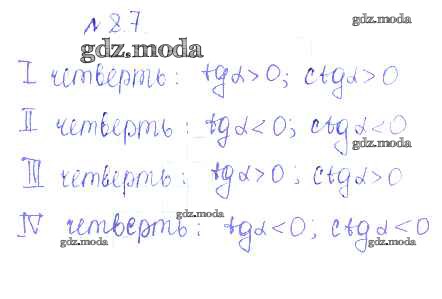 № 8.7.
gdz.moda
gdz.moda
I четверть: tgα>0; ctgα>0
II четверть: tgα<0; ctgα<0
gdz.moda
III четверть: tgα>0; ctgα>0
gdz.moda
IV четверть: tgα<0; ctgα<0
gdz.moda
gdz.moda